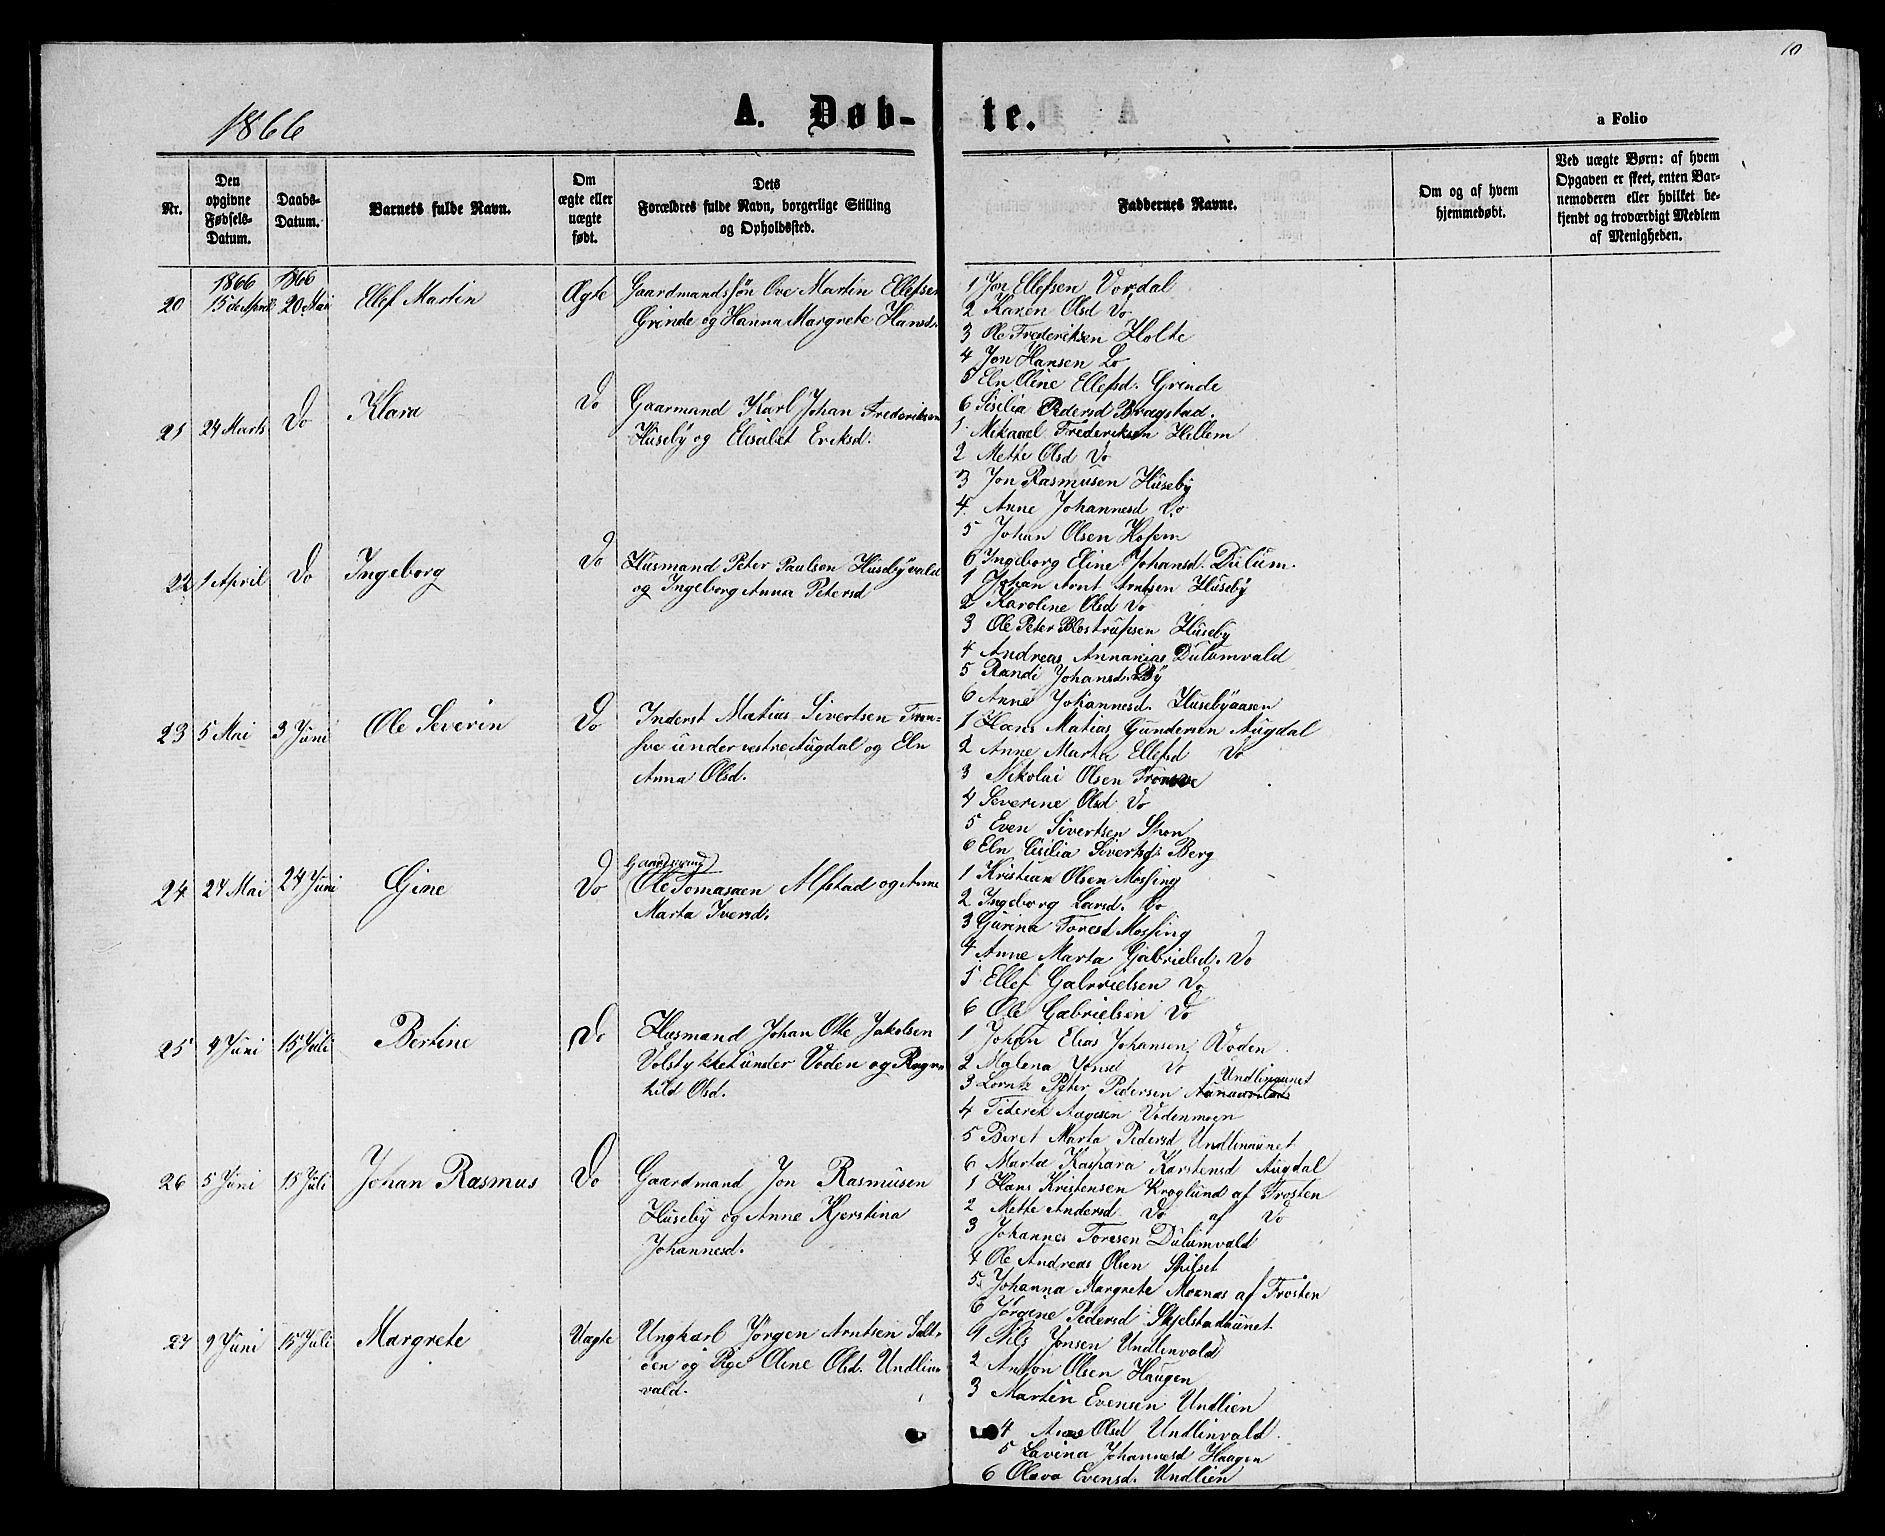 10
1866
A. Døb-te.
a Folio
Nr.
Den opgivne Fødsels-Datum.
Daabs-Datum.
Barnets fulde Navn.
Om ægte eller uægte født.
Dets Forældres fulde Navn, borgerlige Stilling og Opholdssted.
Faddernes Navne.
Om og af hvem hjemmedøbt.
Ved uægte Børn: af hvem Opgaven er skeet, enten Barnemoderen eller hvilket bekjendt og troværdigt Medlem af Menigheden.
1866 1866
20 15de April 20 Mai Ellef Martin Ægte Gaardmandssøn Ove Martin Ellefsen
Grinde og Hanna Margrete Hansd.
1 Jon Ellefsen Vordal
2 Karen Olsd Do
3 Ole Frederiksen Holte
4 Jon Hansen Lo
5 Eln Oline Ellefsd. Grinde
6 Sisilia Pedersd Bragstad.
21 24 Marts Do Klara Do Gaarmand Karl Johan Frederiksen
Huseby og Elisabet Eriksd.
1 Mikael Frederiksen Hellem
2 Mette Olsd Do
3 Jon Rasmusen Huseby
4. Anne Johannesd Do
5 Johan Olsen Kosem
6 Ingeborg Eline Johansd. Dulum.
22 1 April Do Ingeborg Do Husmand Peter Paulsen Husebyvald
og Ingeborg Anna Petersd
1 Johan Arnt Arntsen Huseby
2 Karoline Olsd Do
3 Ole Peter Blostrupsen Huseby
4 Andreas Annanias Dulumvald
5 Randi Johansd. By
6 Anne Johannesd. Husebyaasen
23 5 Mai 3 Juni Ole Severin Do Inderst Matias Sivertsen Tron-
sve under vestre Augdal og Eln
Anna Olsd.
1 Hans Matias Gundersen Augdal
2 Anne Marta Ellefsd Do
3 Nikolai Olsen Tronsve
4 Severine Olsd Do
5 Even Sivertsen
6 Eln Cisilia Sivertsd. Berg
24 27 Mai 24 Juni Gine Do Gaardmand
Ole Tomasen Alstad og Anne
Marta Iversd.
1 Kristian Olsen Mossing
2 Ingeborg Larsd. Do
3 Gurina Toresd Mossing
4 Anne Marta Gabrielsd. Do
5 Ellef Gabrielsen Do
6 Ole Gabrielsen Do
25 4 Juni 15 Juli Bertine Do Husmand Johan Otte Jakobsen
Volstykket under Voden og Ragn-
hild Olsd.
1 Johan Elias Johansen Voden
2 Malena Jonsd Do
3 Lorntz Peter Pedersen Undlinaunet
4 Tiderek Aagesen Vodenmoen
5 Beret Marta Pedersd Undlinaunet
6 Marta Kaspara Karstensd Augdal
26 5 Juni 15 Juli Johan Rasmus Do Gaardmand Jon Rasmusen
Huseby og Anne Kjerstina
Johannesd.
1 Hans Kristensen Kroglund af Frosten
2 Mette Andersd Do af Do
3 Johannes Toresen Dulumvald
4 Ole Andreas Olsen Spilset
5. Johanna Margrete Moenas af Frosten
6 Jørgine Pedersd Skjelstadaunet
27 9 Juni 15 Juli Margrete Uægte Ungkarl Jørgen Arntsen Salt-
øen og Pige Oline Olsd. Undlin-
vald.
1 Nils Jonsen Undlinvald
2 Anton Olsen Haugen
3 Martin Evensen Undlien
4 Olsd Undlinvald.
5 Lavina Johannesd Haagen
6 Olava Evensd. Undlien